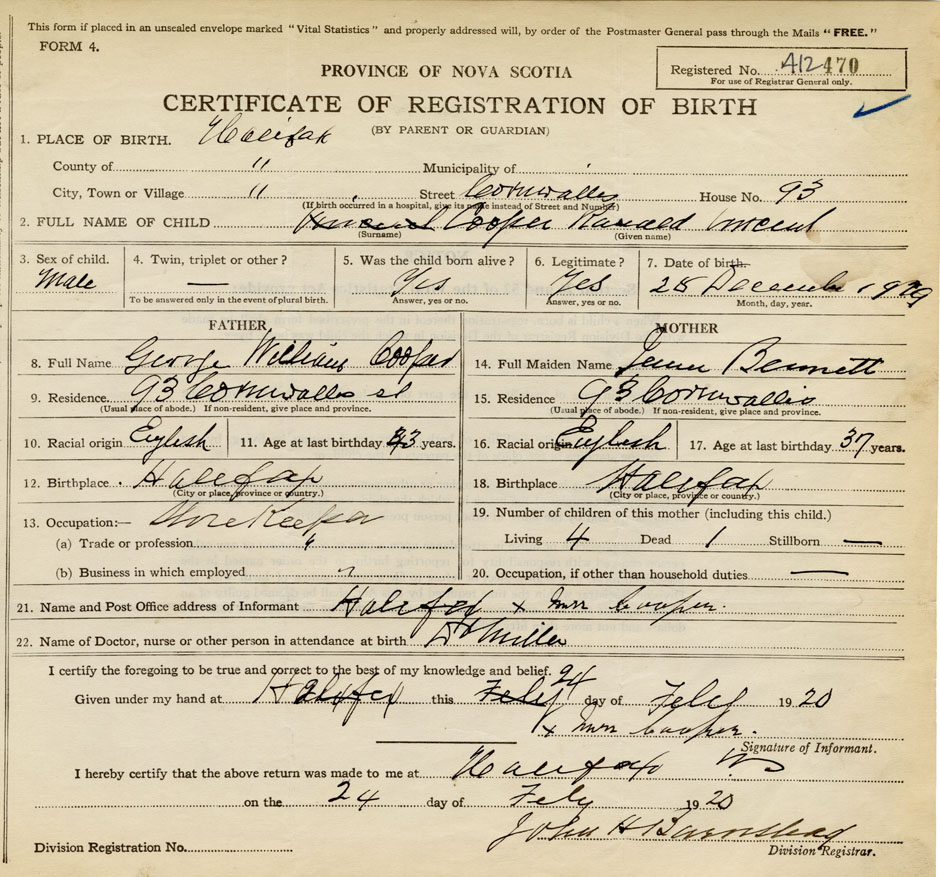 This form if placed in an unsealed envelope marked "Vital Statistics" and properly addressed will, by order of the Postmaster General pass through the Mails "FREE."
FORM 4.
Registered No. 412470
For use of Registrar General only.
PROVINCE OF NOVA SCOTIA
CERTIFICATE OF REGISTRATION OF BIRTH
(BY PARENT OR GUARDIAN)
1. PLACE OF BIRTH. Halifax
County of " Municipality of
City, Town or Village " Street Cornwallis House No. 93
(If birth occurred in a hospital, give its name instead of Street and Number)
2. FULL NAME OF CHILD Cooper Ranald Vincent
(Surname) (Given name)
3. Sex of child. 4. Twin, triplet or other? 5. Was the child born alive? 6. Legitimate? 7. Date of birth
Male — Yes Yes 28 December 1919
To be answered only in the event of plural birth. Answer, yes or no. Answer, yes or no. Month, day, year.
FATHER MOTHER
8. Full Name George William Cooper 14. Full Maiden Name Bennett
9. Residence 93 Cornwallis st 15. Residence 93 Cornwallis
(Usual place of abode.) If non-resident, give place and province. (Usual place of abode.) If non-resident, give place and province.
10. Racial origin English 11. Age at last birthday 33 years. 16. Racial origin English 17. Age at last birthday 37 years.
12. Birthplace Halifax 18. Birthplace Halifax
(City or place, province or country.) (City or place, province or country.)
13. Occupation:— Storekeeper 19. Number of children of this mother (including this child.)
(a) Trade or profession " Living 4 Dead 1 Stillborn —
(b) Business in which employed " 20. Occupation, if other than household duties —
21. Name and Post Office address of Informant Halifax x Mrs Cooper.
22. Name of Doctor, nurse or other person in attendance at birth Dr Miller
I certify the foregoing to be true and correct to the best of my knowledge and belief.
Given under my hand at Halifax this 24 day of Feby 1920
x Mrs Cooper.
Signature of Informant.
I hereby certify that the above return was made to me at Halifax NS
on the 24 day of Feby 1920
John H Barnstead
Division Registration No. Division Registrar.